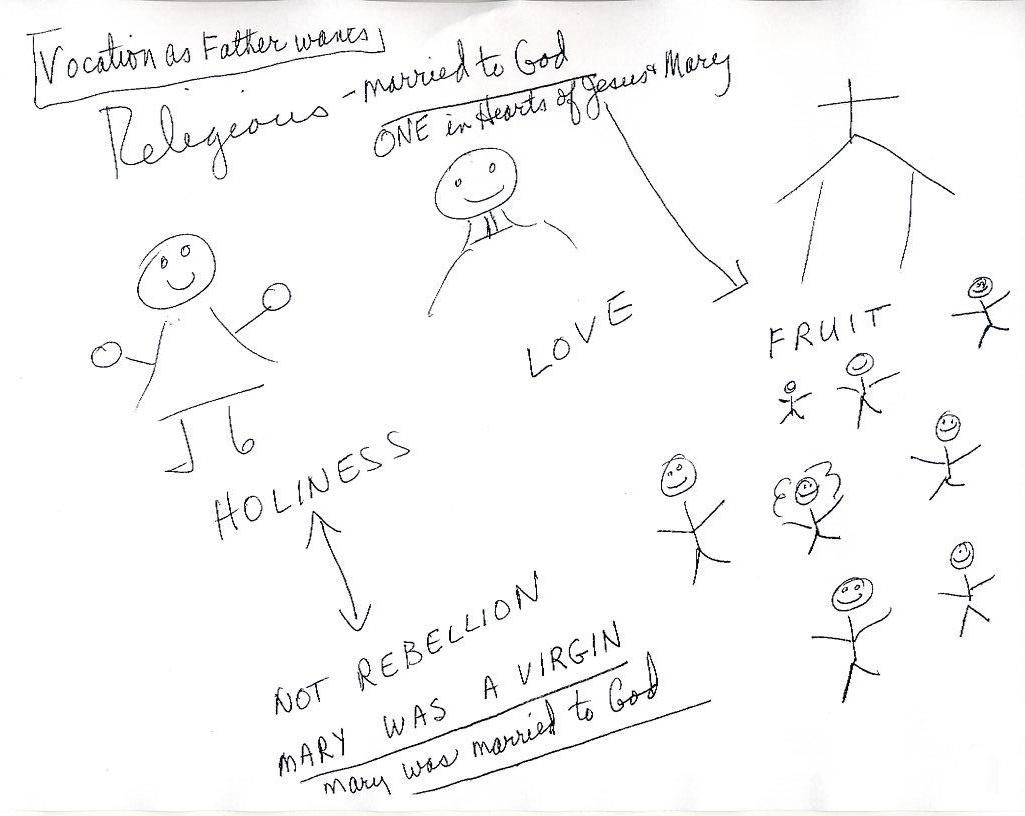 Vocation as Father wants
Religeious - married to God
ONE in Hearts of Jesus & Mary
LOVE
FRUIT
HOLINESS
NOT REBELLION
MARY WAS A VIRGIN
Mary was married to God